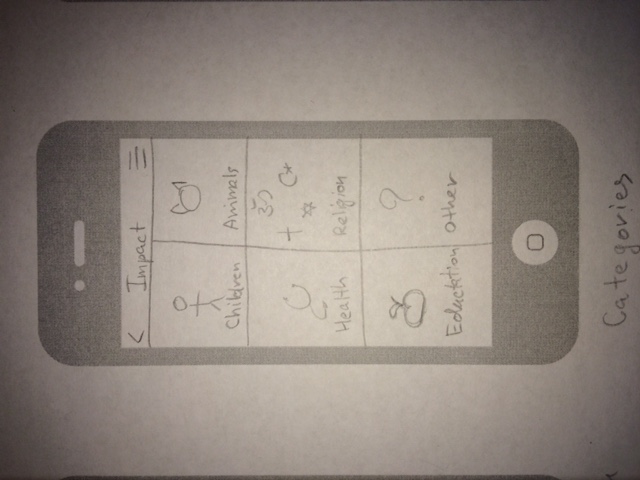 < Impact
Children Animals
Health Religion
Eductation Other
?
Categories